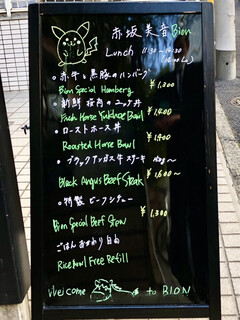 赤坂 美音 Bion
Lunch 11:30~14:30
○ 赤牛&黒豚のハンバーグ
Bion Special Hamberg ¥1,300
○ 新鮮 桜肉のユッケ丼
Fresh Horse Yukhoe Bowl ¥1,400
○ ローストホース丼
Roasted Horse Bowl ¥1,400
○ ブラックアンガス牛ステーキ
Black Angus Beef Steak ¥1,600~
○ 特製 ビーフシチュー
Bion Special Beef Stew ¥1,300
ごはんおかわり自由
Rice Bowl Free Refill
Welcome to BION